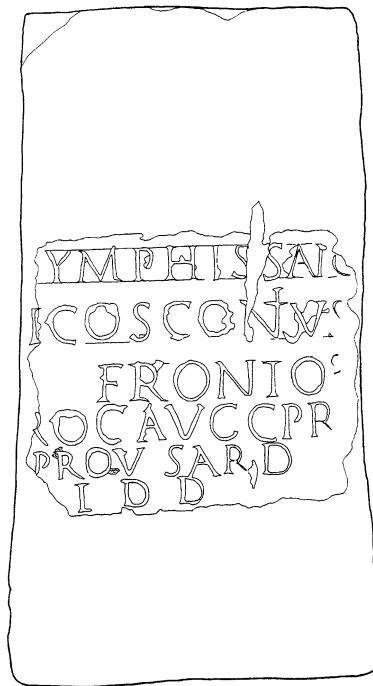 YMPHIS SAL
COSCONIVS
FRONIO
ROC AVCC PR
PROV SARD
I D D